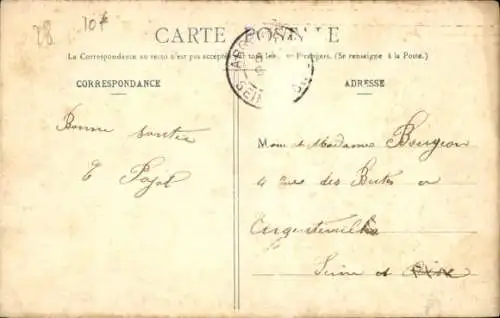 28 10f
CARTE POSTALE
La Correspondance au recto n'est pas acceptée tous les Étrangers. (Se renseigne à la Poste.)
CORRESPONDANCE
ADRESSE
ARG
SEIN
Bonne santée
E Pajot
Mons et Madame Bougeon
4 rue des Buttes a
Argenteuil
Seine et Oise